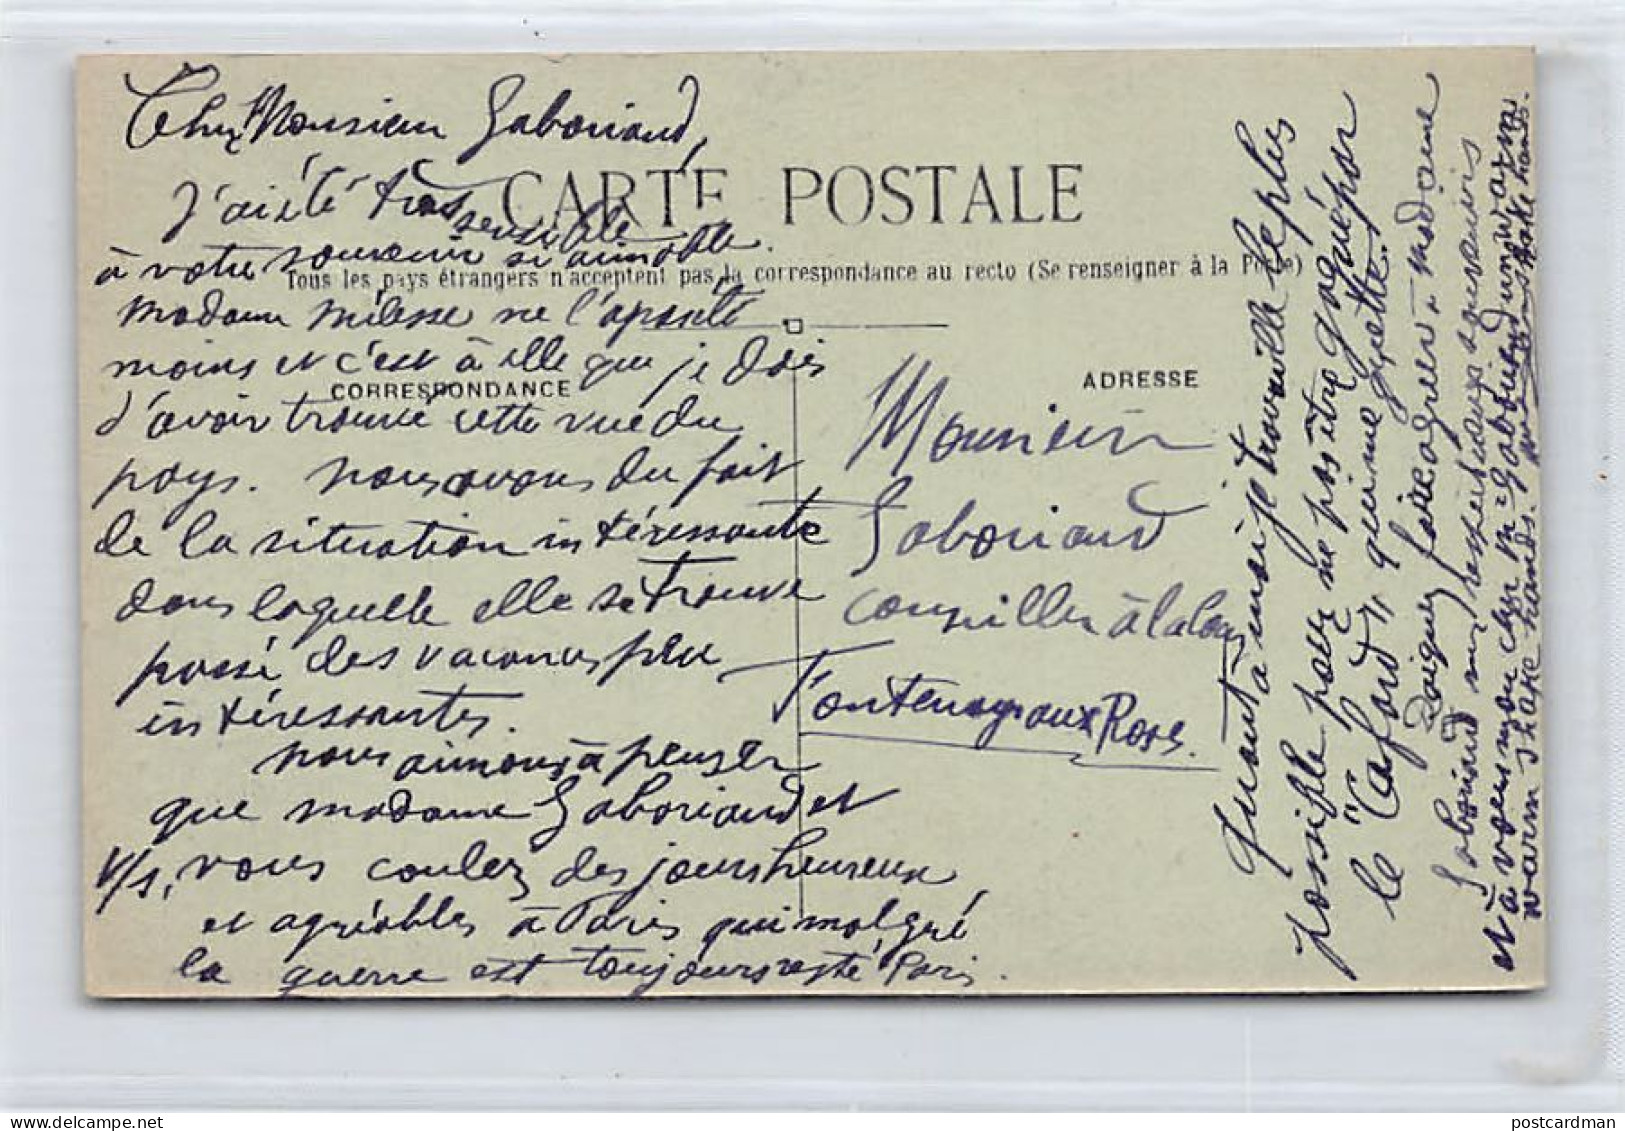 Cher Monsieur Gaboriaud,
J'ai été très sensible
à votre souvenir si aimable.
Madame Milesse ne l'a pas été
moins et c'est à elle que je dois
d'avoir trouvé cette vue du
pays. Nous avons du fait
de la situation intéressante
dans laquelle elle se trouve
passé des vacances peu
intéressantes.
Nous aimons à penser
que madame Gaboriaud et
v/s, vous coulez des jours heureux
et agréables à Paris qui malgré
la guerre est toujours resté Paris.
CARTE POSTALE
Tous les pays étrangers n'acceptent pas la correspondance au recto (Se renseigner à la Poste)
CORRESPONDANCE
ADRESSE
Monsieur
Gaboriaud
conseiller à la Cour
Fontenay aux Roses
Quant à moi je travaille le plus
possible pour ne pas être gagné par
le "Cafard" qui me guette.
Daignez faire agréer à Madame
Gaboriaud mes respectueux souvenirs
et à vous mon cher Mr Gaboriaud un warm
warm shake hands.
shake hands.
postcardman